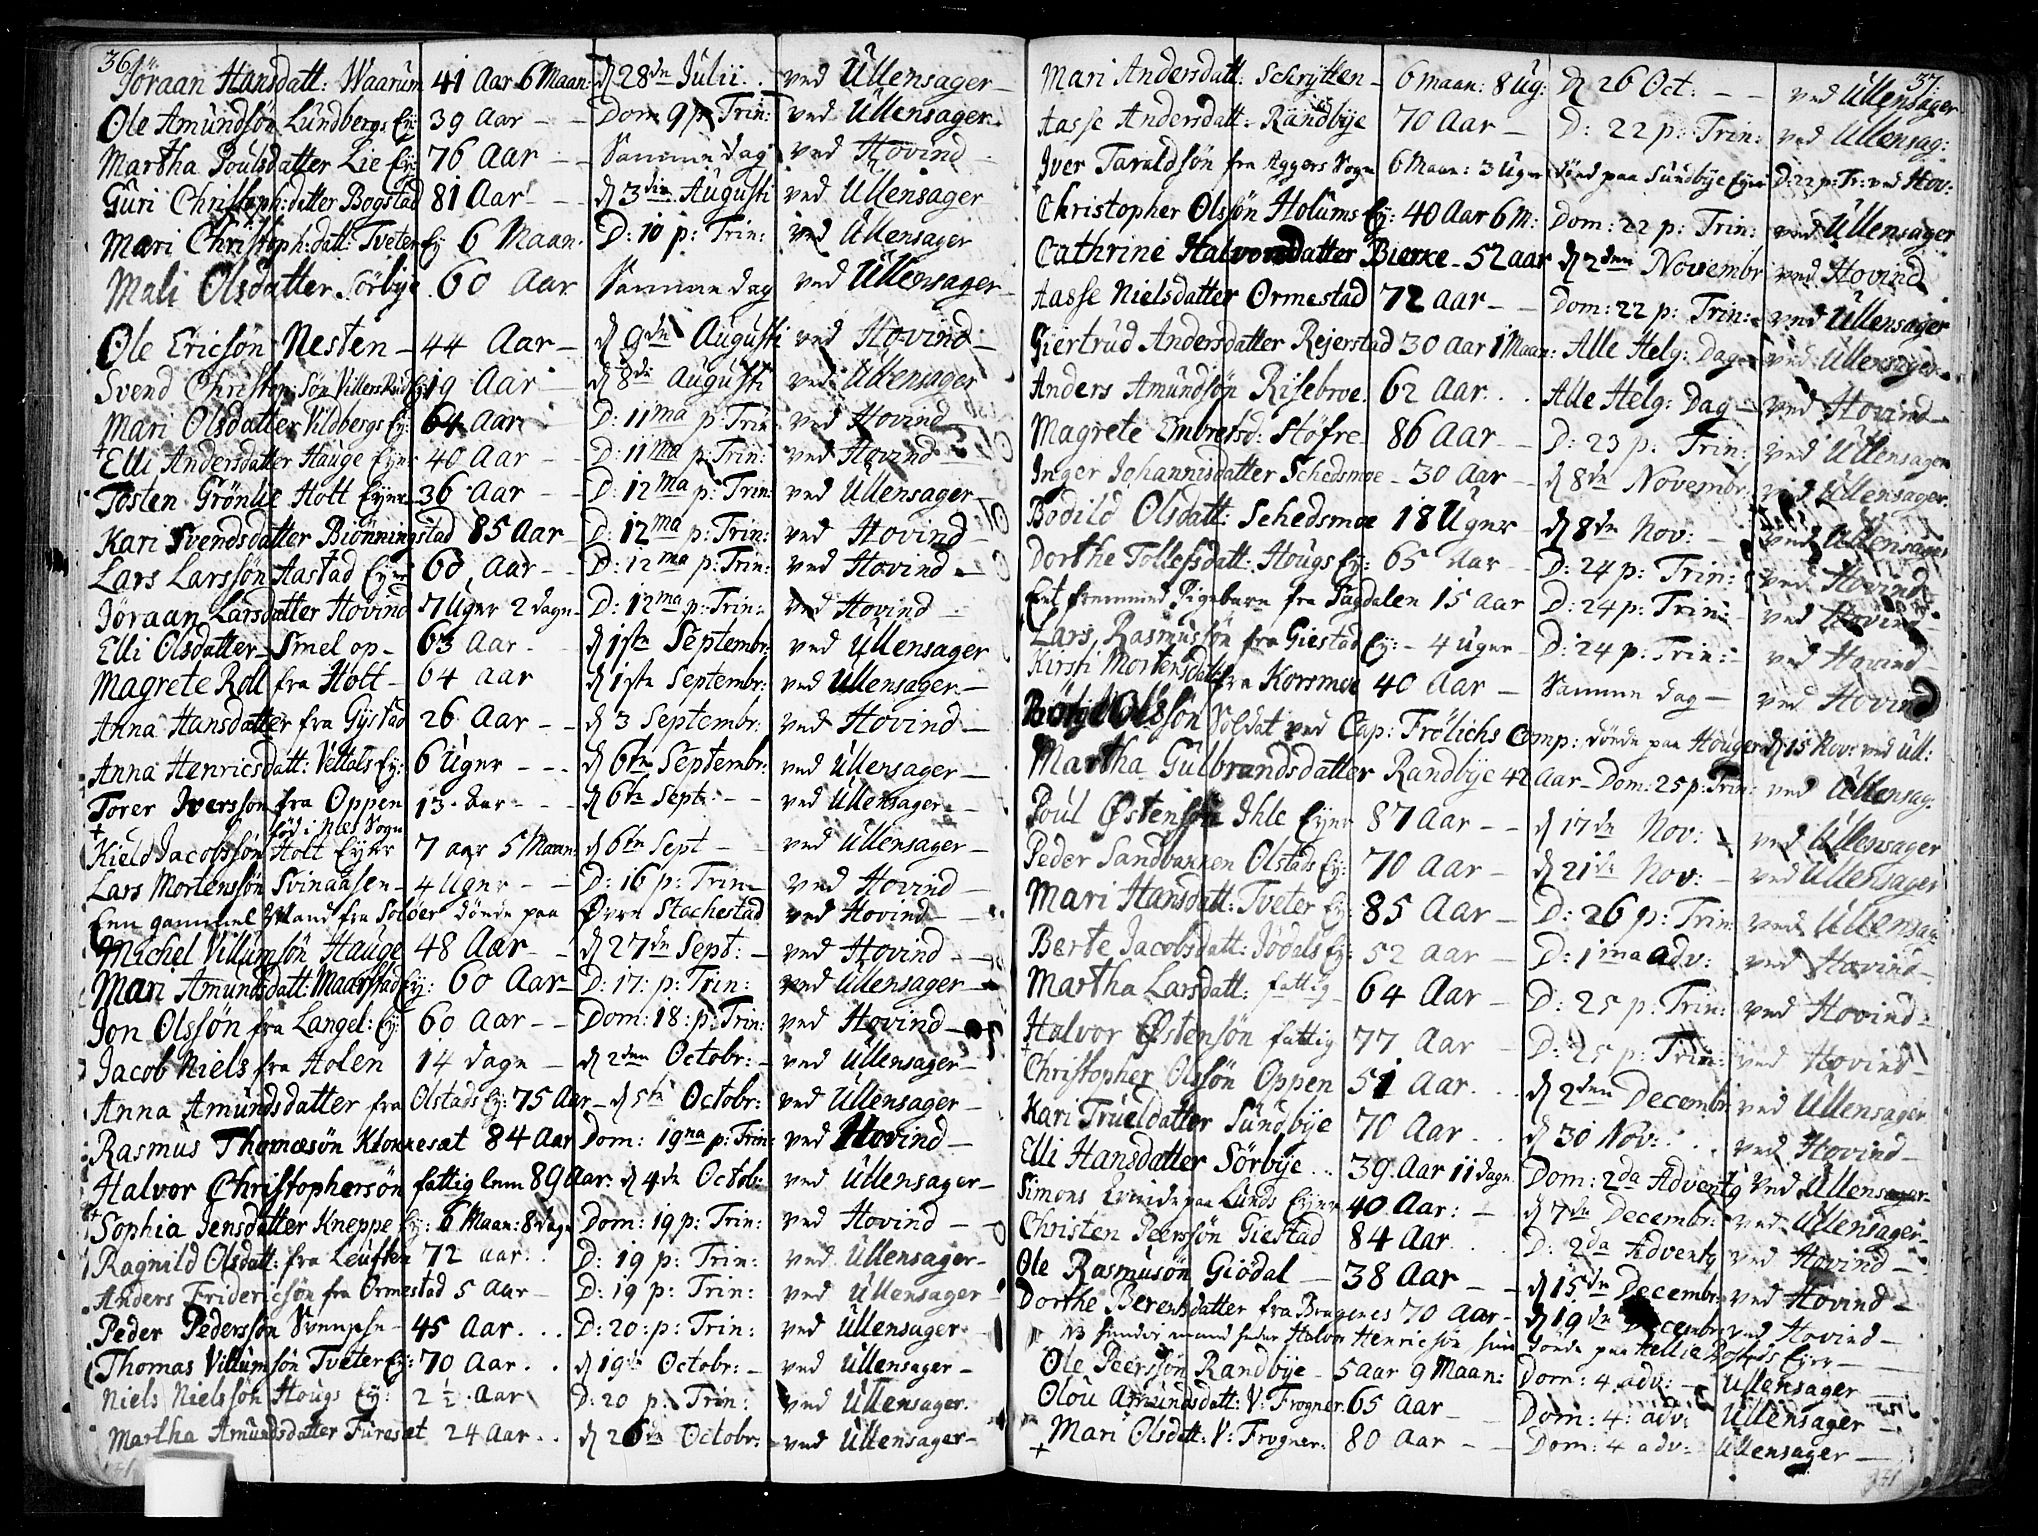 36.
Jöraan Hansdatt: Waarum 41 Aar 6 Maan: d 28de Julii ved Ullensager
Ole Amundsön Lundbergs Ey: 39 Aar Dom 9 p: Trin: ved Ullensager
Martha Poulsdatter Lie Ey: 76 Aar Samme dag ved Hovind
Guri Christoph:datter Bogstad 81 Aar d 3die Augusti ved Ullensager
Mari Christoph:datt: Tveter Ey 6 Maan. D: 10 p: Trin: ved Ullensager
Mali Olsdatter Sörbye 60 Aar Samme dag ved Ullensager
Ole Ericsön Nesten 44 Aar d 9de Augusti ved Hovind
Svend Christop: Sön 19 Aar d 8de Augusti ved Ullensager
Mari Olsdatter Vildbergs Ey: 64 Aar D: 11ma p: Trin ved Hovind
+ Elli Andersdatter Hauge Eyer 40 Aar D: 11ma p: Trin: ved Hovind
Tosten Grönlie Holt Eyer 36 Aar D: 12ma p: Trin: ved Ullensager
Kari Svendsdatter Biönningstad 85 Aar D: 12ma p: Trin: ved Hovind
Lars Larssön Aastad Eyer 60 Aar D: 12ma p: Trin: ved Hovind
Jöraan Larsdatter Hovind 7 Uger 2 dage D: 12ma p: Trin: ved Hovind
Elli Olsdatter Smelop 63 Aar d 1ste Septembr: ved Ullensager
Magrete Roll fra Holt 64 Aar d 1ste Septembr: ved Ullensager
Anna Hansdatter fra Gystad 26 Aar d 3 Septembr: ved Hovind
Anna Henricsdatt: Veltals Ey: 6 Uger d 6te Septembr: ved Ullensager
Torer Iverssön fra Oppen 13 Aar d 6te Sept: ved Ullensager
+ föd i Nes Sogn
Kield Jacobssön Holt Eyer 7 aar 5 Maan: d 6te Sept ved Ullensager
Lars Mortenssön Svinaasen 4 Uger D: 16 p: Trin ved Hovind
Een gammel Mand fra Solöer döde paa Övre Stachestad ved Hovind
Michel Villumsön Hauge 48 Aar d 27de Sept: ved Hovind
Mari Amundsdatt: Maarstad Ey: 60 Aar D: 17: p: Trin: ved Ullensager
Jon Olssön fra Langel: Ey: 60 Aar Dom: 18: p: Trin: ved Hovind
Jacob Niels fra Holen 14 dage d 2den Octobr: ved Ullensager
Anna Amundsdatter fra Olstads Ey: 75 Aar d 5te Octobr: ved Ullensager
Rasmus Thomæsön Klonnesæt 84 Aar Dom: 19na p: Trin: ved Hovind
Halvor Christophersön fattig lem 89 Aar: d 4de Octob: ved Ullensager
+ Sophia Jensdatter Kneppe Ey: 6 Maan: 8 dage Dom: 19 p: Trin: ved Hovind
Ragnild Olsdatt: fra Leuften 72 aar: D: 19 p: Trin: ved Ullensager
Anders Fridericsön fra Ormestad 5 Aar D: 19 p: Trin: ved Ullensager
Peder Pederssön 45 Aar D: 20: p: Trin: ved Ullensager
Thomas Villumsön Tveter Ey: 70 Aar d 19de Octobr: ved Ullensager
Niels Nielssön Hougs Ey: 2½ Aar D: 20 p: Trin: ved Ullensager
Martha Amundsdatter Furesæt 24 Aar d 26de Octobr: ved Ullensager
37.
Mari Andersdatt: Schrytten 6 maan: 8 Ug: d 26 Oct: ved Ullensager
Aasse Andersdatt: Randbye 70 Aar D: 22 p: Trin: ved Ullensag:
Iver Taraldsön fra Aggers Sogn 6 Maan: 3 Uger döde paa Sundbye Eyer D: 22 p: Tr: ved Hov:
+ Christopher Olssön Holums Ey: 40 Aar 6 M: Dom: 22 p: Trin: ved Ullensager
Cathrine Halvorsdatter Bierke 52 aar d 2den Novembr ved Hovind
Aasse Nielsdatter Ormestad 72 Aar Dom: 22 p: Trin: ved Ullensager
Giertrud Andersdatter Rejerstad 30 Aar 1 Maan: Alle Helg: Dag ved Ullensager
Anders Amundsön Risebroe 62 Aar Alle Helg: Dag ved Hovind
Magrete Embretsd: Höfre 86 Aar D: 23 p: Trin: ved Ullensager
Inger Johannisdatter Schedsmoe 30 Aar d 8de Novembr: ved Ullensager
Bodild Olsdatt: Schedsmoe 18 Uger d 8de Nov: ved Ullensager
Dorthe Tollefsdatt: Hougs Ey: 65 Aar D: 24 p: Trin: ved Hovind
Eet fremmed Pigebarn fra Sagdalen 15 Aar D: 24 p: Trin: ved Hovind
Lars Rasmussön fra Giestad Ey: 4 Uger D: 24 p: Trin: ved Hovind
Kirsti Mortensdatt: fra Korsmoe 40 Aar Samme dag ved Hovind
Olssön Soldat ved Cap: Frölichs Comp: döde paa Hougen d 15 Nov: ved Ull:
Martha Gulbrandsdatter Randbye 42 Aar Dom: 25 p: Trin: ved Ullensag:
Poul Østenssön Ihle Eyer 87 Aar d 17de Nov: ved Ullensager
Peder Sandbakken Olstads Ey: 70 Aar d 21de Nov: ved Ullensager
Mari Hansdatt: Tveter Ey: 85 Aar D: 26 p: Trin ved Ullensag:
Berte Jacobsdatt: Jödals Ey: 52 Aar D: 1ma adv: ved Hovind
Martha Larsdatt: fattig 64 Aar D: 25 p: Trin: ved Hovind
Halvor Østensön fattig 77 Aar D: 25 p: Trin: ved Hovind
+ Christopher Olssön Oppen 51 Aar d 2den Decembr ved Ullensager
Kari Trueldatter Sundbye 70 Aar d 30 Nov: ved Hovind
Elli Hansdatter Sörbye 39 Aar 11 dage Dom: 2da Adventg ved Ullensager
Simons paa Lunds Eyer 40 Aar: d 7de Decembr: ved Ullensager
Christen Peerssön Giestad 84 Aar D: 2da Adventg ved Hovind
Ole Rasmusön Giödal 38 Aar d 15de Decembr: ved Hovind
Dorthe Berentsdatter fra Bragenes 70 Aar d 19de Decembr ved Hovind
NB hendes mand heder Halvor Henricsön hun döde paa Eyer
Ole Peerssön Randbye 5 aar 9 Maan: Dom: 4 adv: Ullensager
Olou Amundsdatt: V: Frogner 65 aar Dom: 4: adv: Ullensager
+ Mari Olsdatt: V: Frogner: 80 Aar Dom: 4 adv: Ullensager